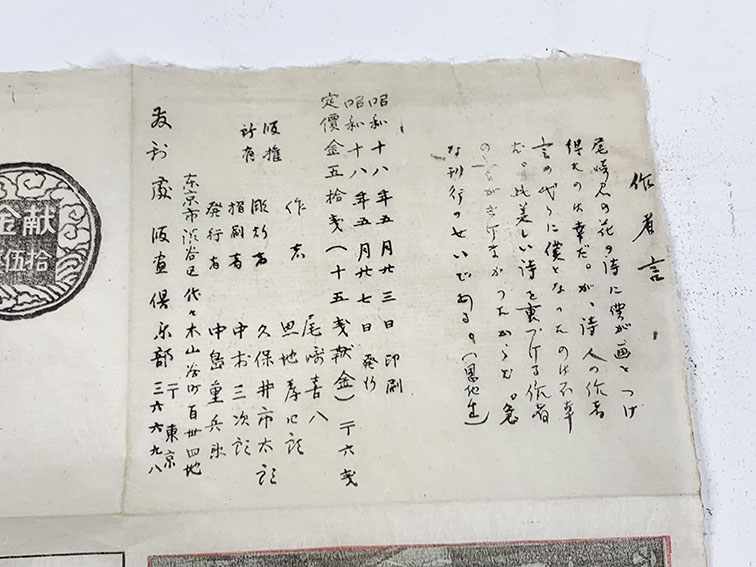 作者言
尾崎君の花の詩に僕が画をつけ
得たのは幸だ。が、詩人の作者
言の代りに僕となつたのは不幸
だ。此美しい詩を裏づける作者
の言がきけなかつたから
な刊行のせいである。(恩地生)
昭和十八年五月廿三日印刷
昭和十八年五月廿七日発行
定價金五拾戔(十五戔献金)〒六戔
版権所有
作者 尾崎喜八
恩地孝四郎
彫刻者 久保井市太郎
摺刷者 中村三次郎
発行者 中島重兵衛
東京市渋谷区代々木山谷町百卅四地
発刊處 版画倶楽部 〒東京三六六九八
献金
拾伍